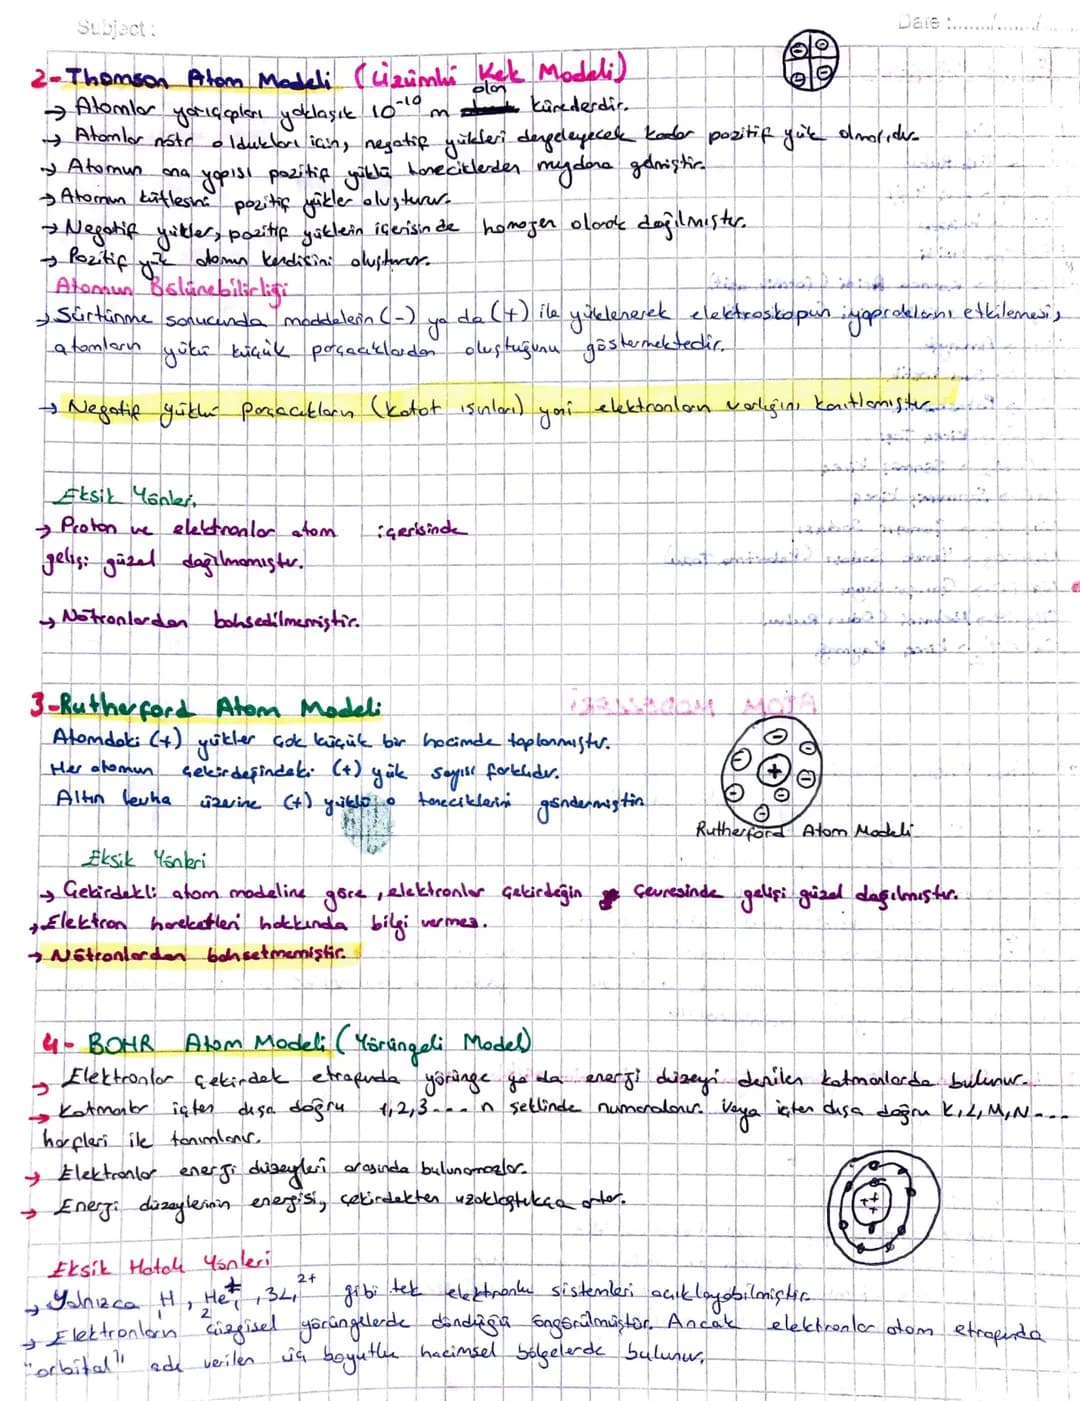 Subject:
Date :......./......./....
2-Thomson Atom Modeli (Üzümlü Kek Modeli)
→ Atomlar yarıçapları yaklaşık 10⁻¹⁰ m olan kürelerdir.
→ Atomlar nötr oldukları için, negatif yükleri dengeleyecek kadar pozitif yük olmalıdır.
→ Atomun ana yapısı pozitif yüklü taneciklerden meydana gelmiştir.
→ Atomun kütlesini pozitif yükler oluşturur.
→ Negatif yükler, pozitif yüklein içerisinde homojen olarak dağılmıştır.
→ Pozitif yük atomun kendisini oluşturur.
Atomun Bölünebilirliği
→ Sürtünme sonucunda maddelerin (-) ya da (+) ile yüklenerek elektroskopun yapraklarını etkilemesi,
atomların yükü küçük parçacıklardan oluştuğunu göstermektedir.
→ Negatif yüklü parçacıkların (katot ışınları) yani elektronların varlığını kanıtlamıştır.
Eksik Yönleri,
→ Proton ve elektronlar atom içerisinde
gelişi güzel dağılmamıştır.
→ Nötronlardan bahsedilmemiştir.
3-Rutherford Atom Modeli
Atomdaki (+) yükler çok küçük bir hacimde toplanmıştır.
Her atomun çekirdeğindeki (+) yük sayısı farklıdır.
Altın levha üzerine (+) yüklü taneciklerini göndermiştir
Rutherford Atom Modeli
Eksik Yönleri
→ Çekirdekli atom modeline göre, elektronlar çekirdeğin çevresinde gelişi güzel dağılmıştır.
→ Elektron hareketleri hakkında bilgi vermez.
→ Nötronlardan bahsetmemiştir.
4- BOHR Atom Modeli (Yörüngeli Model)
→ Elektronlar çekirdek etrafında yörünge ya da enerji düzeyi denilen katmanlarda bulunur.
→ Katmanlar içten dışa doğru 1,2,3... n şeklinde numaralanır. Veya içten dışa doğru K,L,M,N...
harfleri ile tanımlanır.
→ Elektronlar enerji düzeyleri arasında bulunamazlar.
→ Enerji düzeylerinin enerjisi, çekirdekten uzaklaştıkça artar.
Eksik Hatalı Yönleri
→ Yalnızca ₁H, ₂He⁺, ₃Li²⁺ gibi tek elektronlu sistemleri açıklayabilmiştir.
→ Elektronların çizgisel yörüngelerde döndüğü öngörülmüştür. Ancak elektronlar atom etrafında
"orbital" adı verilen üç boyutlu hacimsel bölgelerde bulunur.